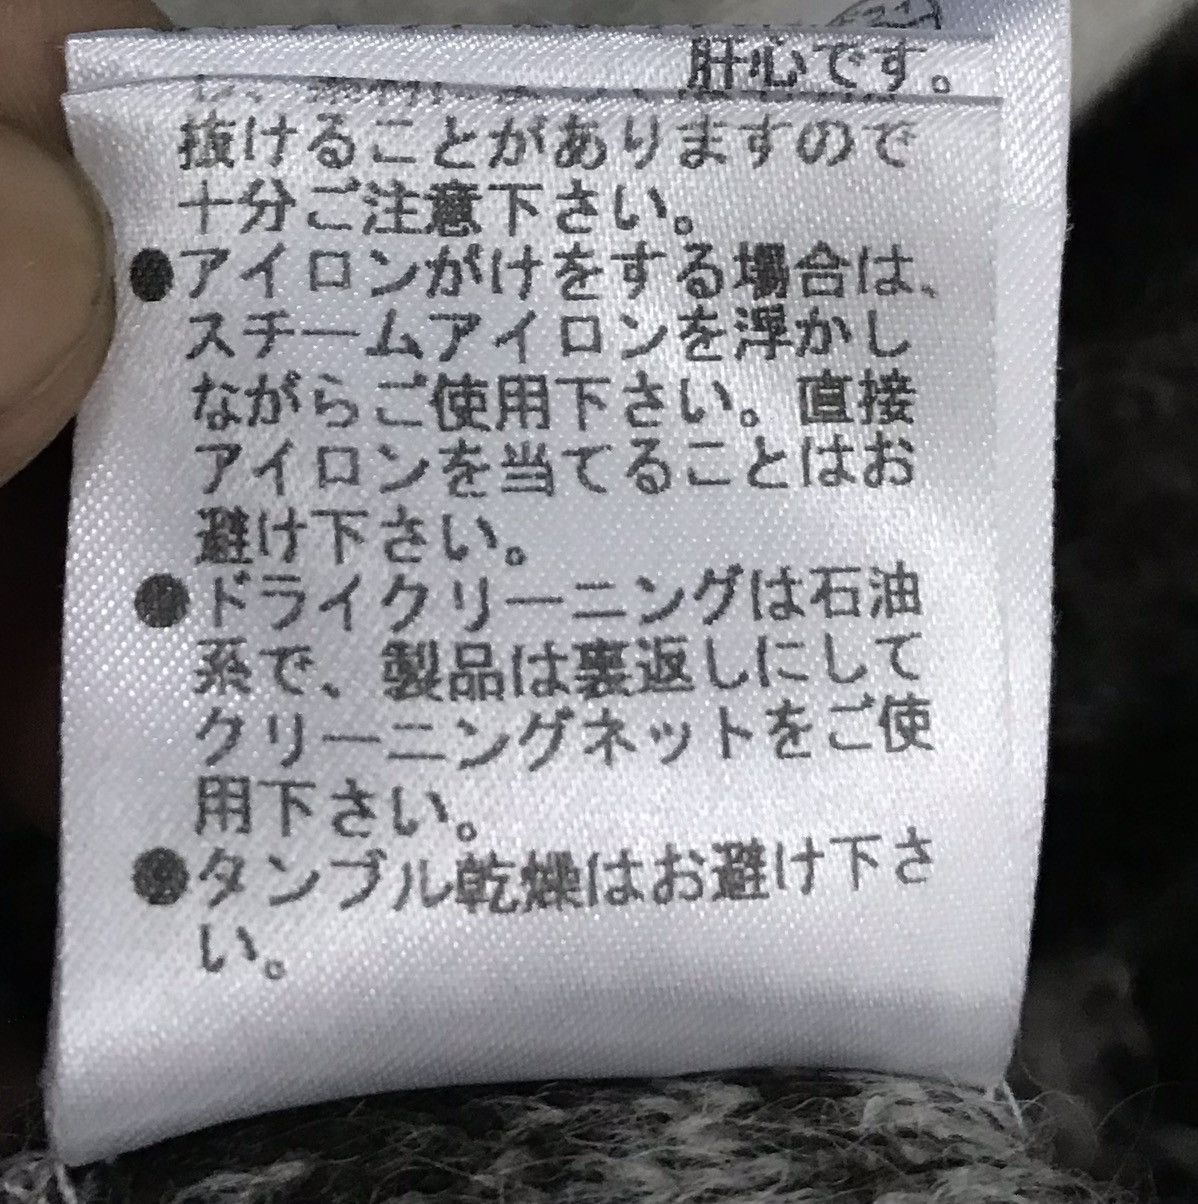 肝心です。
抜けることがありますので
十分ご注意下さい。
●アイロンがけをする場合は、
スチームアイロンを浮かし
ながらご使用下さい。直接
アイロンを当てることはお
避け下さい。
●ドライクリーニングは石油
系で、製品は裏返しにして
クリーニングネットをご使
用下さい。
●タンブル乾燥はお避け下さ
い。